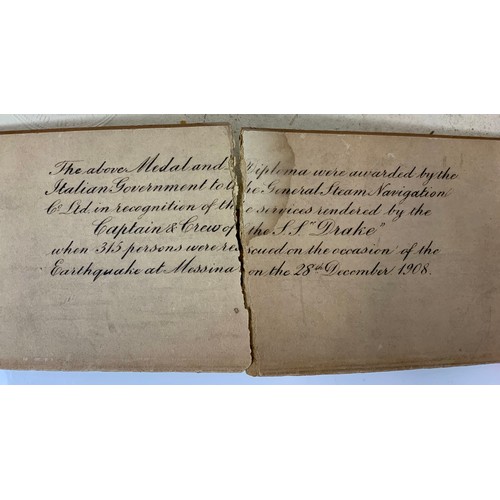 The above Medal and Diploma were awarded by the
Italian Government to the General Steam Navigation
Co Ltd in recognition of the services rendered by the
Captain & Crew of the S.S. "Drake"
when 315 persons were rescued on the occasion of the
Earthquake at Messina on the 28th December 1908.